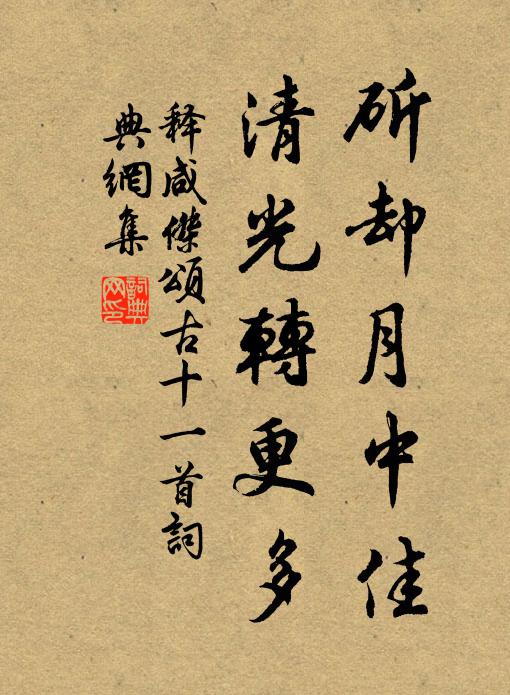 斫却月中佳
清光轉更多
釋咸傑頌古十一首詞
典網集
詞典
网印